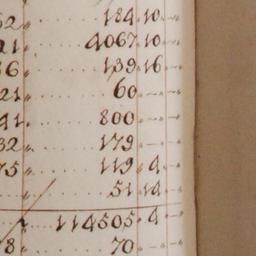 52 „ 184 „ 10 „ –„
21 „ 4067 „ 10 „ –„
36 „ 139 „ 16 „ –„
21 „ 60 „ –„ –„
41 „ 800 „ –„ –„
32 „ 179 „ –„ –„
75 „ 119 „ 4 „ –„
„ 51 „ 14 „ –„
„ 114505 „ 4 „ –„
78 „ 70 „ –„ –„